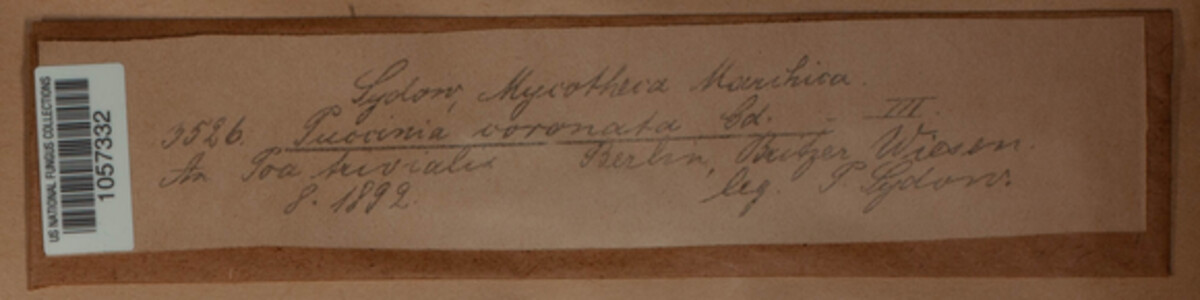 US NATIONAL FUNGUS COLLECTIONS
1057332
Sydow, Mycotheca Marchica.
3526. Puccinia coronata Cd. - III.
An Poa trivialis Berlin, Britzer Wiesen.
8. 1892. leg. P. Sydow.